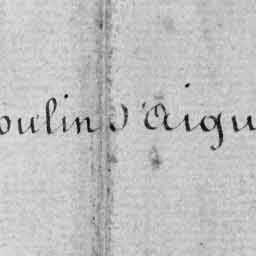 oulin d'Aigu